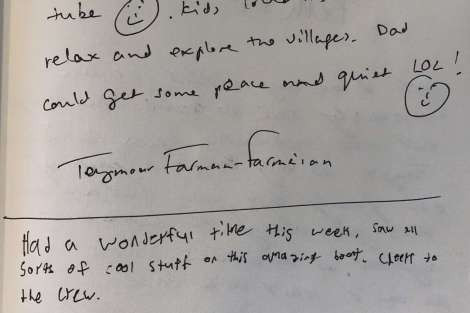 tube . kids
relax and explore the villages. Dad
could get some peace and quiet LOL!
Teymour Farman-Farmaian
Had a wonderful time this week, saw all
sorts of cool stuff on this amazing boat. Cheers to
the crew.